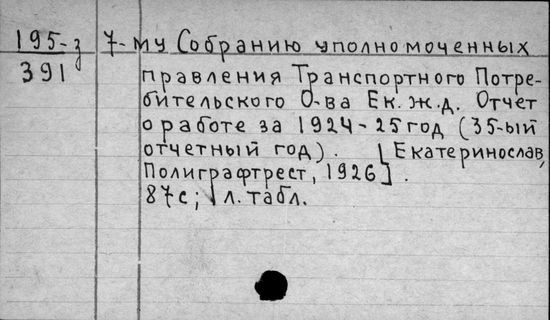 195-з
391
7-му Собранию уполномоченных
правления Транспортного Потре-
бительского О-ва Ек.ж.д. Отчет
о работе за 1924-25 год (35-ый
отчетный год). [Екатеринослав,
Полиграфтрест, 1926].
87с; 1 л. табл.